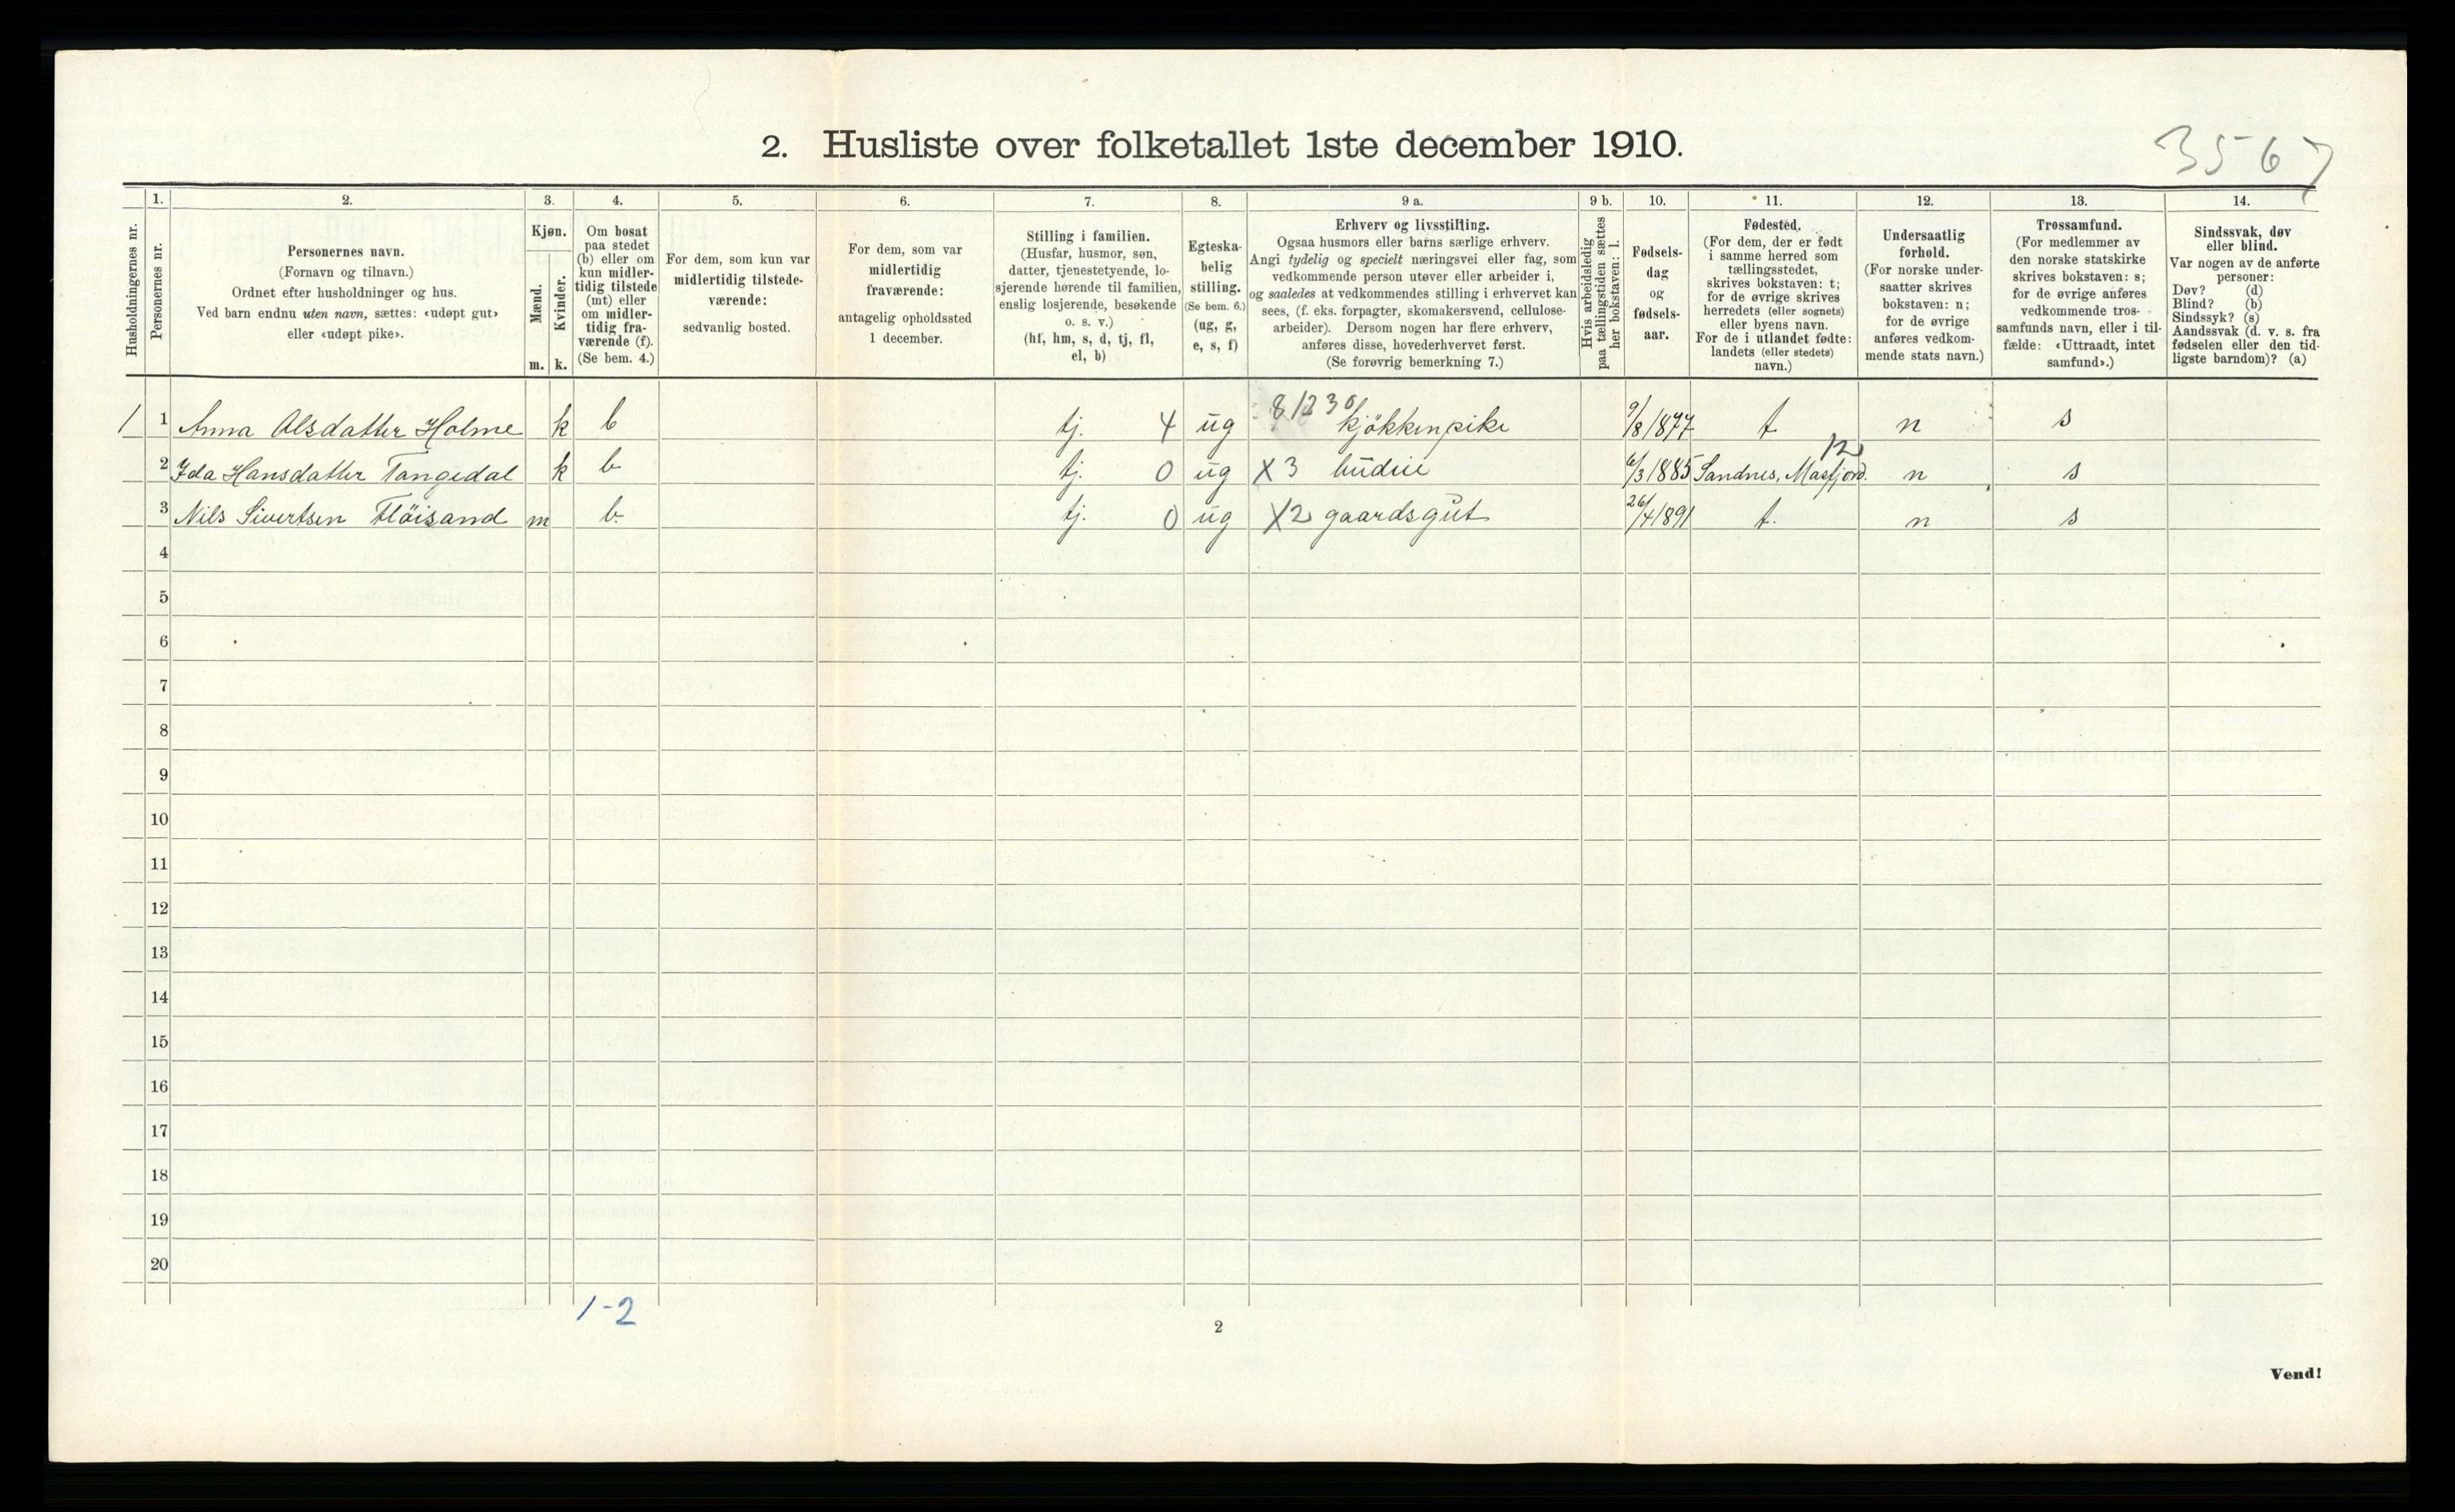 2. Husliste over folketallet 1ste december 1910.
3567
Husholdningernes nr.
1.
Personernes nr.
2.
Personernes navn.
(Fornavn og tilnavn.)
Ordnet efter husholdninger og hus.
Ved barn endnu uten navn, sættes: «udøpt gut»
eller «udøpt pike».
3.
Kjøn.
Mænd.
Kvinder.
m. k.
4.
Om bosat
paa stedet
(b) eller om
kun midler-
tidig tilstede
(mt) eller
om midler-
tidig fra-
værende (f).
(Se bem. 4.)
5.
For dem, som kun var
midlertidig tilstede-
værende:
sedvanlig bosted.
6.
For dem, som var
midlertidig
fraværende:
antagelig opholdssted
1 december.
7.
Stilling i familien.
(Husfar, husmor, søn,
datter, tjenestetyende, lo-
sjerende hørende til familien,
enslig losjerende, besøkende
o. s. v.)
(hf, hm, s, d, tj, fl,
el, b)
8.
Egteska-
belig
stilling.
(Se bem. 6.)
(ug, g,
e, s, f)
9 a.
Erhverv og livsstilling.
Ogsaa husmors eller barns særlige erhverv.
Angi tydelig og specielt næringsvei eller fag, som
vedkommende person utøver eller arbeider i,
og saaledes at vedkommendes stilling i erhvervet kan
sees, (f. eks. forpagter, skomakersvend, cellulose-
arbeider). Dersom nogen har flere erhverv,
anføres disse, hovederhvervet først.
(Se forøvrig bemerkning 7.)
9 b.
Hvis arbeidsledig
paa tællingstiden sættes
her bokstaven: l.
10.
Fødsels-
dag
og
fødsels-
aar.
11.
Fødested.
(For dem, der er født
i samme herred som
tællingsstedet,
skrives bokstaven: t;
for de øvrige skrives
herredets (eller sognets)
eller byens navn.
For de i utlandet fødte:
landets (eller stedets)
navn.)
12.
Undersaatlig
forhold.
(For norske under-
saatter skrives
bokstaven: n;
for de øvrige
anføres vedkom-
mende stats navn.)
13.
Trossamfund.
(For medlemmer av
den norske statskirke
skrives bokstaven: s;
for de øvrige anføres
vedkommende tros-
samfunds navn, eller i til-
fælde: «Uttraadt, intet
samfund».)
14.
Sindssvak, døv
eller blind.
Var nogen av de anførte
personer:
Døv? (d)
Blind? (b)
Sindssyk? (s)
Aandssvak (d. v. s. fra
fødselen eller den tid-
ligste barndom)? (a)
1 1 Anna Olsdatter Holme k b tj. 4 ug 81230 kjökkenpike 9/8 1877 t n s
2 Ida Hansdatter Tangedal k b tj. 0 ug X3 budeie 6/3 1885 Sandnes, Masfjord. 12 n s
3 Nils Sivertsen Flöisand m b. tj. 0 ug X2 gaardsgut 26/4 1891 t. n s
4
5
6
7
8
9
10
11
12
13
14
15
16
17
18
19
20
1-2
2
Vend!